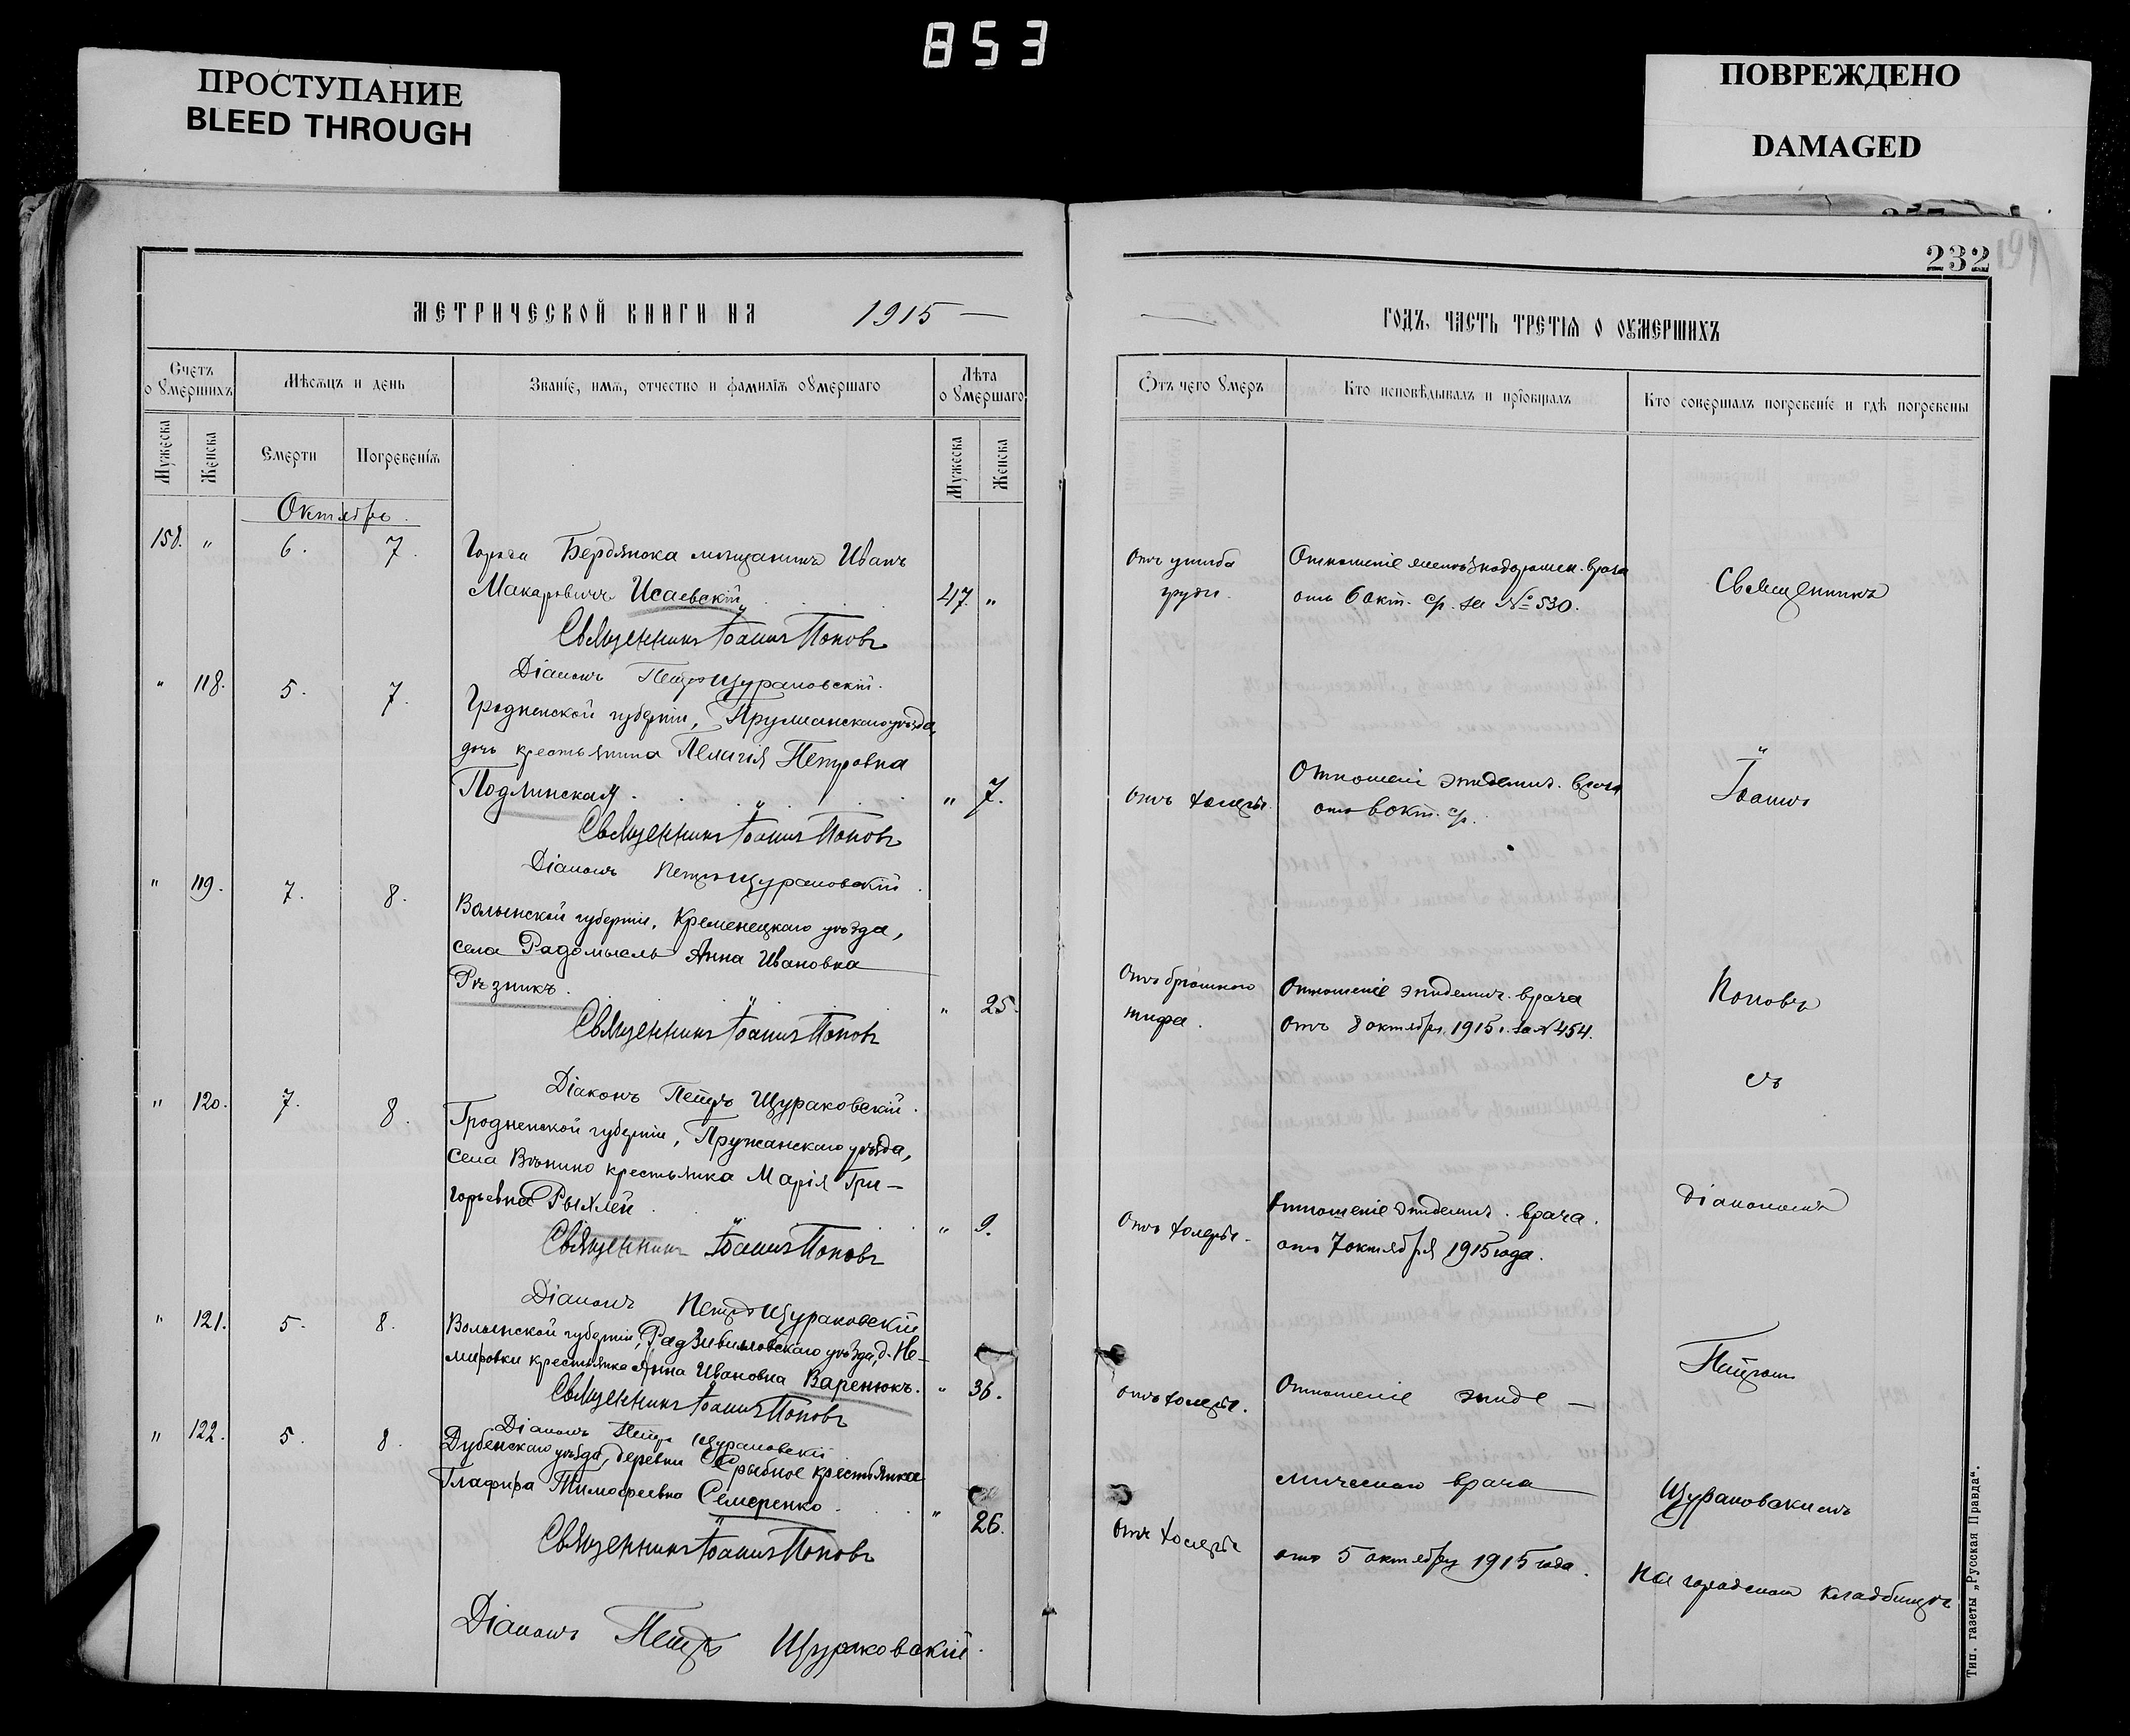 853
ПРОСТУПАНИЕ
BLEED THROUGH
ПОВРЕЖДЕНО
DAMAGED
232
МЕТРИЧЕСКОЙ КНИГИ НА 1915
ГОДЪ, ЧАСТЬ ТРЕТІѦ О ОУМЕРШИХЪ
Счетъ о умершихъ
Мѣсѧцъ и день
Званіе, имѧ, отчество и фамиліѧ оумершаго
Лѣта оумершаго
Отъ чего умеръ
Кто исповѣдывалъ и пріобщалъ
Кто совершалъ погребеніе и гдѣ погребены
Мужеска
Женска
Смерти
Погребеніѧ
Мужеска
Женска
Октябрь
158. " 6. 7.
Города Бердянска мѣщанинъ Иванъ
Макаровичъ Исаевскій 47 "
Отъ ушиба
груди.
Отношеніе желѣзнодорожн. врача
отъ 6 окт. с/г. за № 530.
Священникъ
Священникъ Іоаннъ Поповъ
Діаконъ Петръ Щураковскій.
" 118. 5. 7.
Гродненской губерніи, Пружанскаго уѣзда,
дочь крестьянина Пелагія Петровна
Подлинская " 7.
отъ холеры.
Отношеніе эпидемич. врача
окт. с/г.
Іоаннъ
Священникъ Іоаннъ Поповъ
Діаконъ Петръ Щураковскій
" 119. 7. 8.
Волынской губерніи, Кременецкаго уѣзда,
села Радомысль Анна Ивановна
Рѣзникъ. " 25.
Отъ брюшного
тифа.
Отношеніе эпидемич. врача
отъ 8 октября 1915 г. за № 454.
Поповъ
Священникъ Іоаннъ Поповъ
съ
Діаконъ Петръ Щураковскій.
" 120. 7. 8.
Гродненской губерніи, Пружанскаго уѣзда,
села крестьянка Марія Гри-
горьевна Рыхлей " 9.
Отъ холеры.
Отношеніе эпидемич. врача.
отъ 7 октября 1915 года.
Діакономъ
Священникъ Іоаннъ Поповъ
Діаконъ Петръ Щураковскій
" 121. 5. 8.
Волынской губерніи, Радзивиловскаго уѣзда, д. Не-
мировки крестьянка Анна Ивановна Варенюкъ. " 36.
отъ холеры.
Отношеніе эпиде-
Петромъ
Священникъ Іоаннъ Поповъ
Діаконъ Петръ Щураковскій
" 122. 5. 8.
Дубенскаго уѣзда, деревни крестьянка
Глафира Тимофеевна Семеренко " 26.
Отъ холеры
мическаго врача
отъ 5 октября 1915 года.
Щураковскимъ
на городскомъ кладбищѣ
Священникъ Іоаннъ Поповъ
Діаконъ Петръ Щураковскій.
Тип. газеты „Русская Правда“.